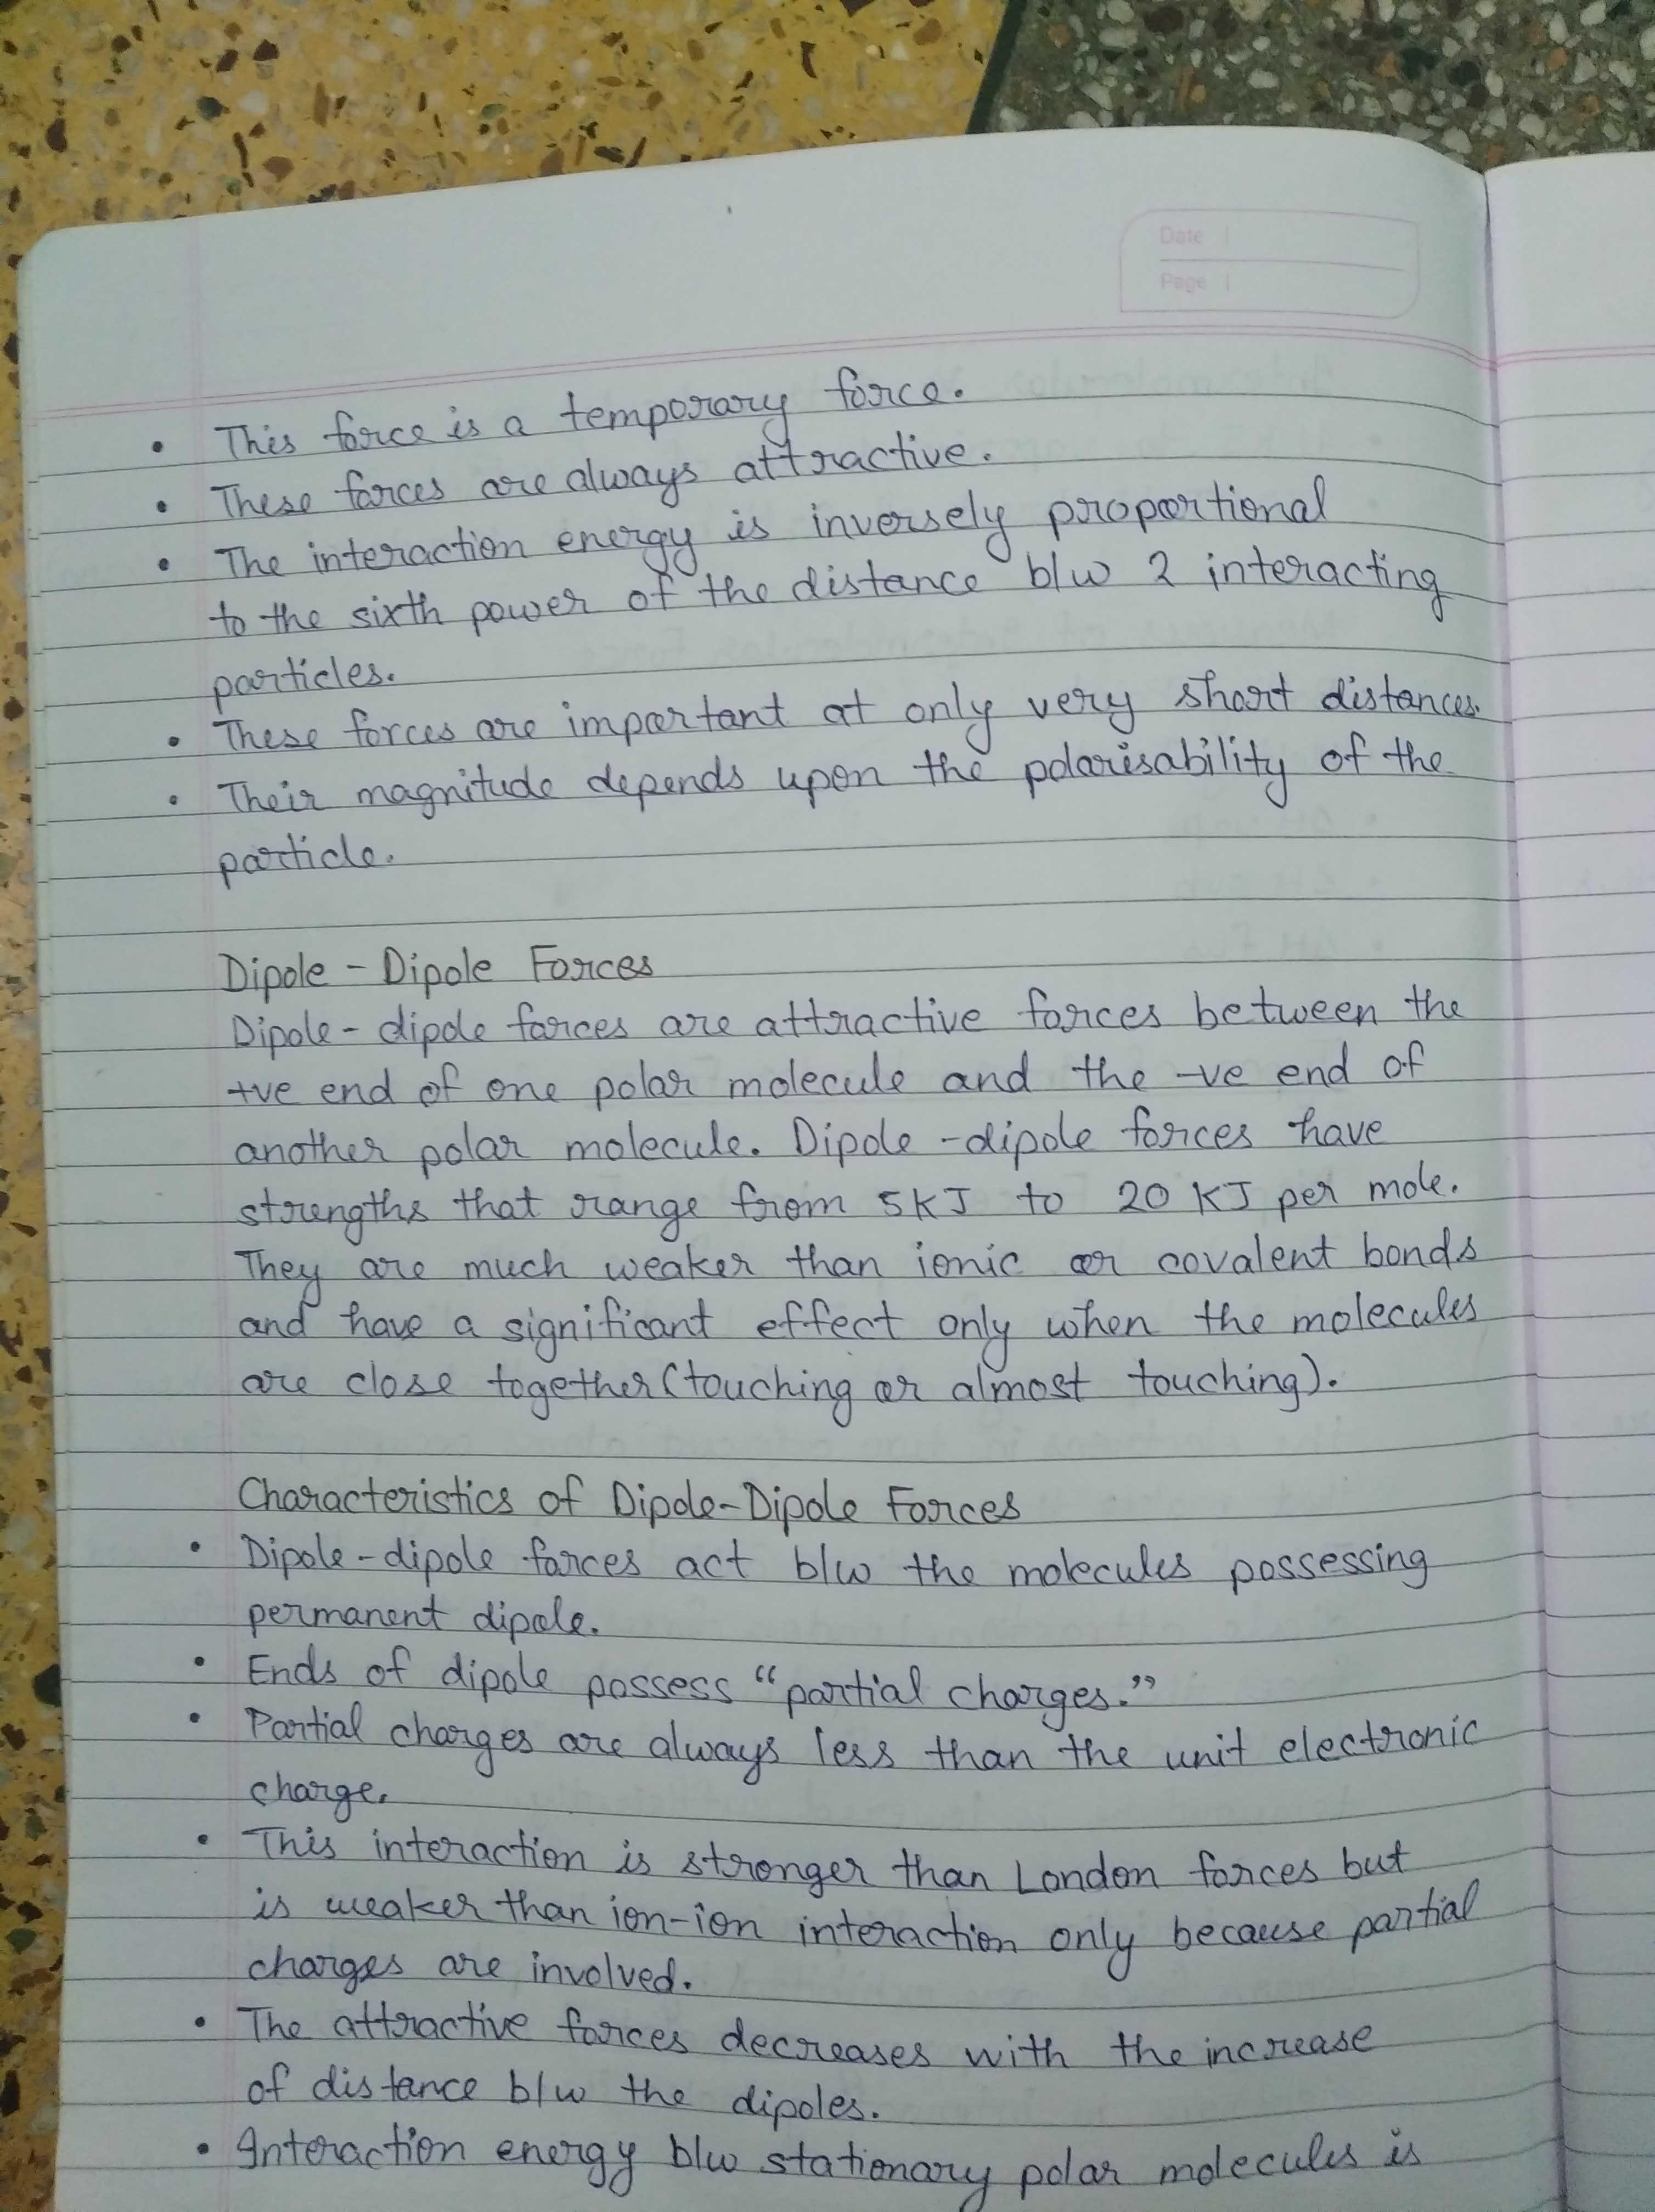 Date
Page
• This force is a temporary force.
• These forces are always attractive.
• The interaction energy is inversely proportional
to the sixth power of the distance b/w 2 interacting
particles.
• These forces are important at only very short distances.
• Their magnitude depends upon the polarisability of the
particle.
Dipole - Dipole Forces
Dipole - dipole forces are attractive forces between the
+ve end of one polar molecule and the -ve end of
another polar molecule. Dipole -dipole forces have
strengths that range from 5KJ to 20 KJ per mole.
They are much weaker than ionic or covalent bonds
and have a significant effect only when the molecules
are close together (touching or almost touching).
Characteristics of Dipole-Dipole Forces
• Dipole-dipole forces act b/w the molecules possessing
permanent dipole.
• Ends of dipole possess "partial charges."
• Partial charges are always less than the unit electronic
charge.
• This interaction is stronger than London forces but
is weaker than ion-ion interaction only because partial
charges are involved.
• The attractive forces decreases with the increase
of distance b/w the dipoles.
• Interaction energy b/w stationary polar molecules is